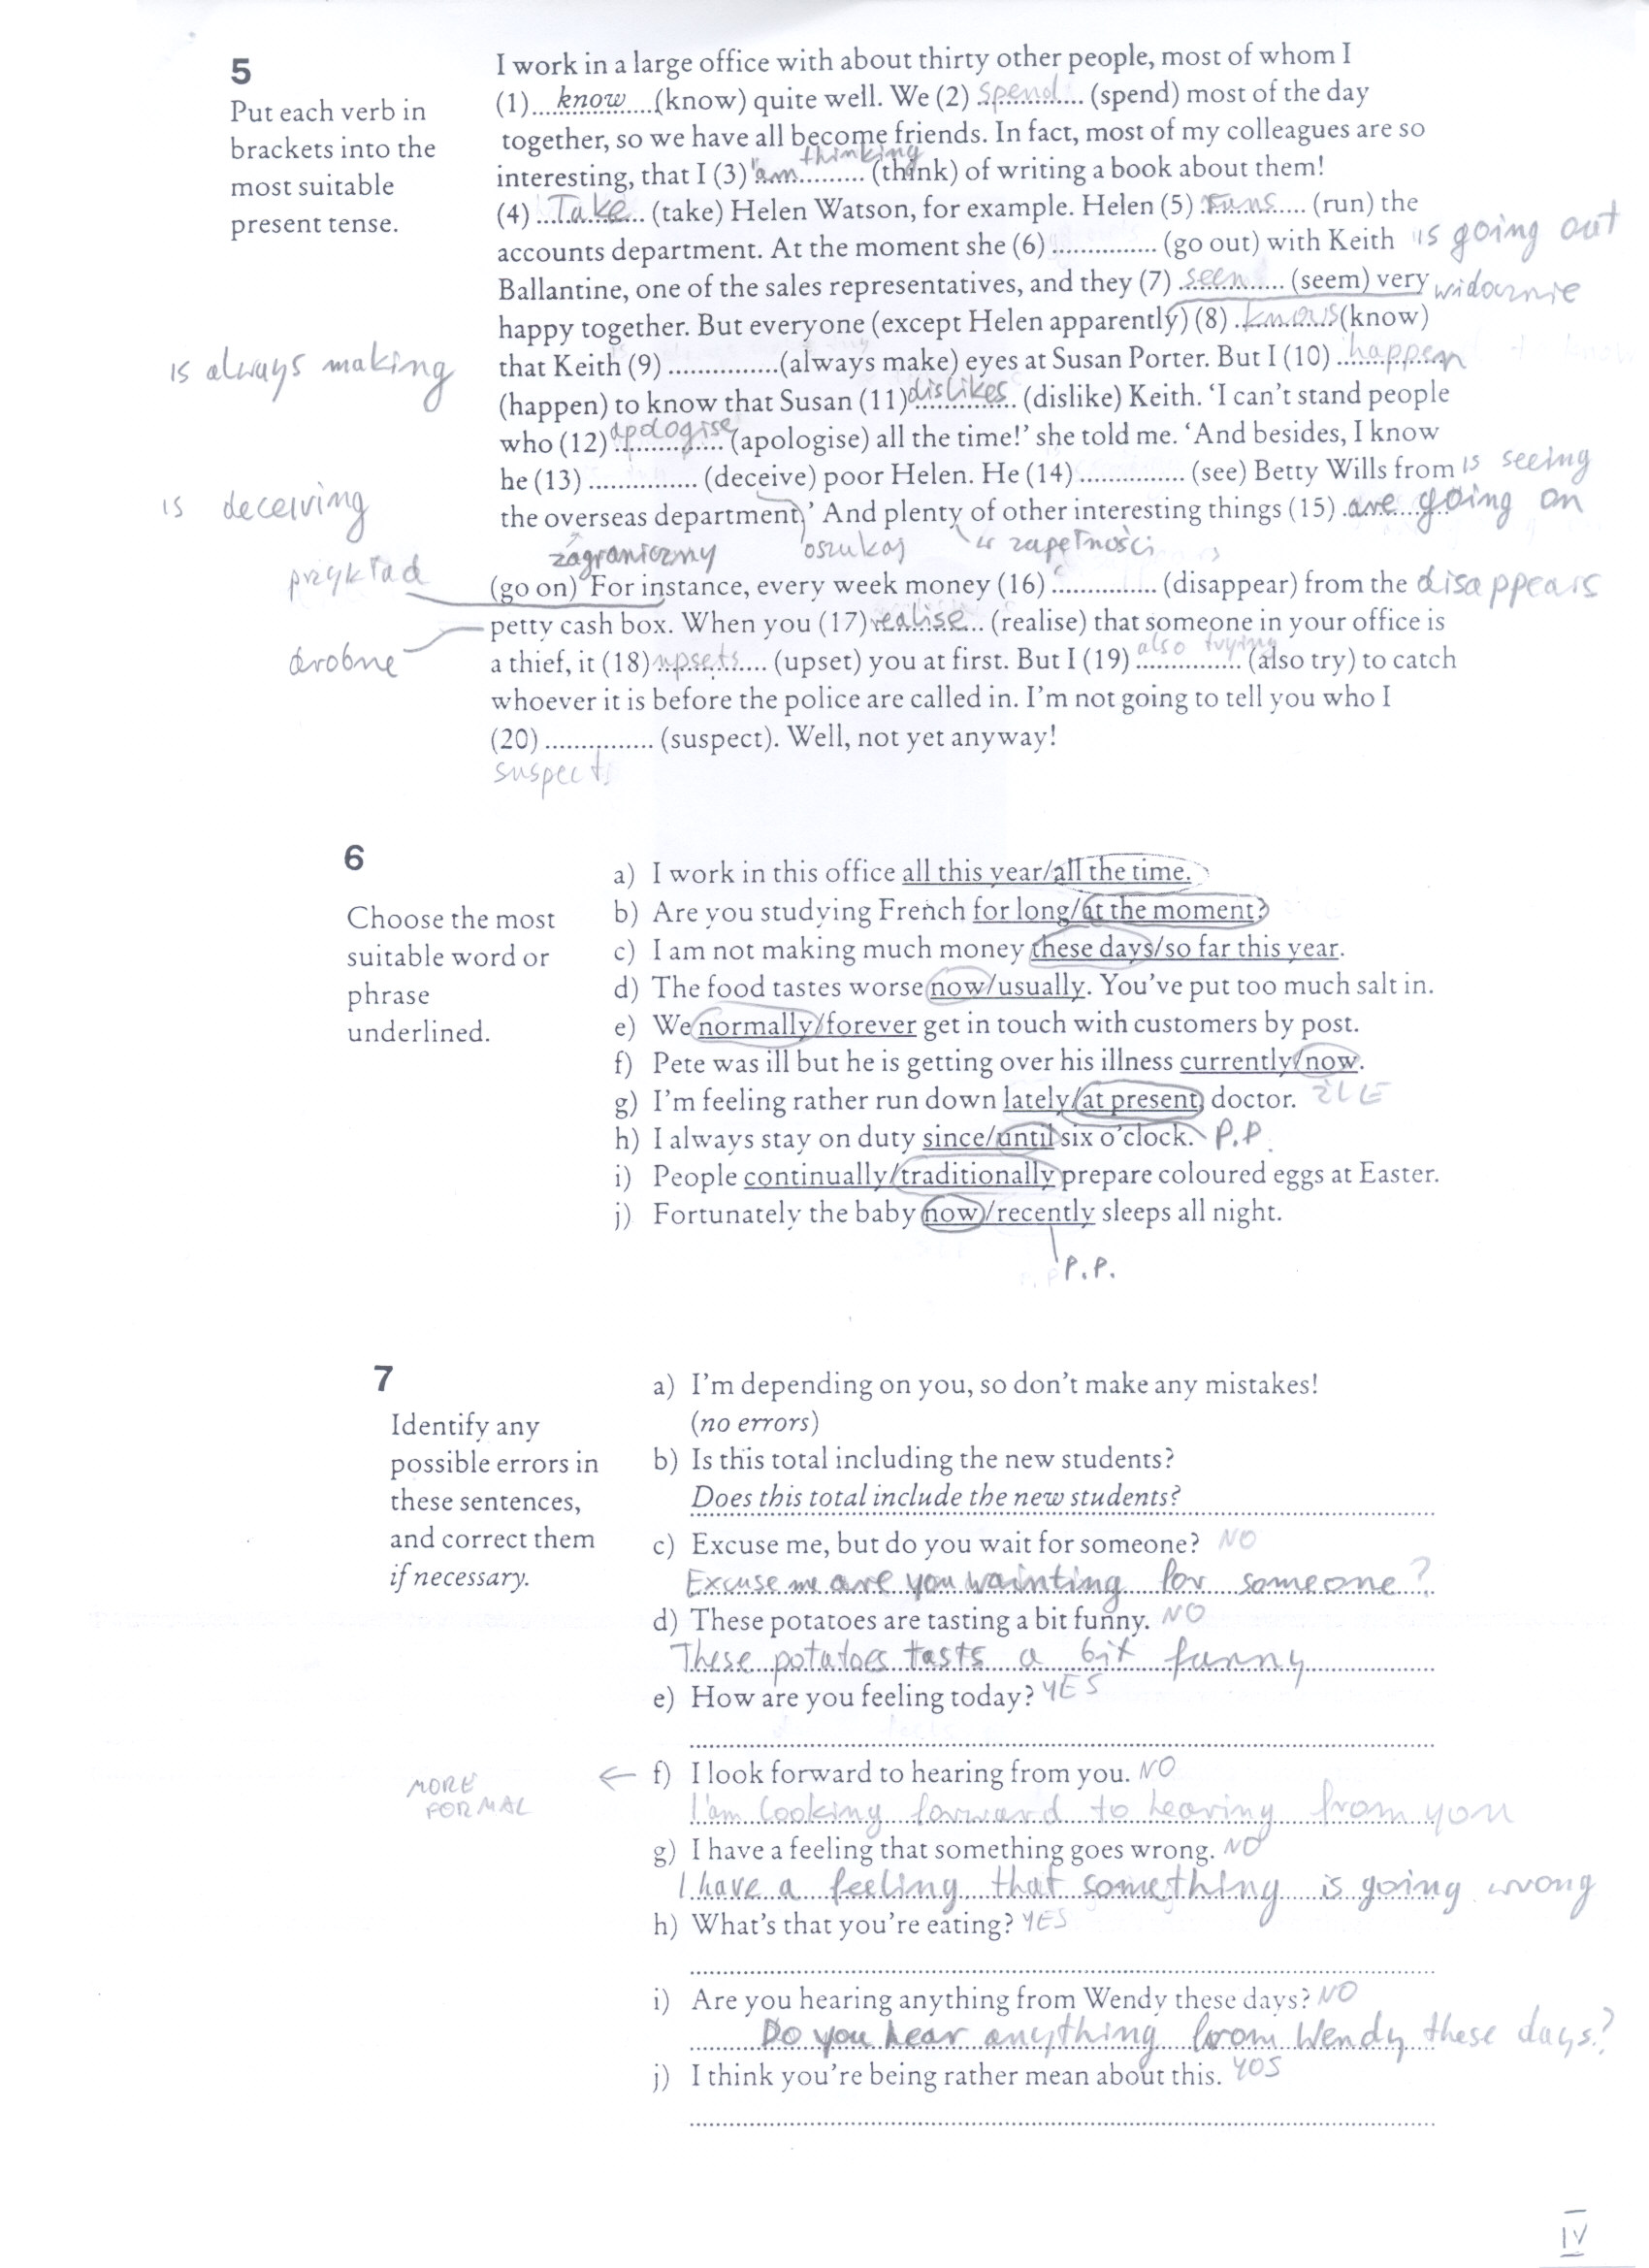 5
Put each verb in
brackets into the
most suitable
present tense.
I work in a large office with about thirty other people, most of whom I
(1)....know....(know) quite well. We (2) spend (spend) most of the day
together, so we have all become friends. In fact, most of my colleagues are so
interesting, that I (3) 'am thinking (think) of writing a book about them!
(4) Take (take) Helen Watson, for example. Helen (5) runs (run) the
accounts department. At the moment she (6) ............... (go out) with Keith is going out
Ballantine, one of the sales representatives, and they (7) seem (seem) very widocznie
happy together. But everyone (except Helen apparently) (8) knows (know)
is always making that Keith (9) ...............(always make) eyes at Susan Porter. But I (10) happen
(happen) to know that Susan (11) dislikes (dislike) Keith. 'I can't stand people
who (12) apologise (apologise) all the time!' she told me. 'And besides, I know
he (13) ............... (deceive) poor Helen. He (14) ............... (see) Betty Wills from is seeing
is deceiving the overseas department.' And plenty of other interesting things (15) are going on
zagraniczny oszukaj w zapełności
przykład (go on) For instance, every week money (16) ............... (disappear) from the disappears
petty cash box. When you (17) realise (realise) that someone in your office is
drobne a thief, it (18) upsets (upset) you at first. But I (19) also trying (also try) to catch
whoever it is before the police are called in. I'm not going to tell you who I
(20) ............... (suspect). Well, not yet anyway!
suspect
6
Choose the most
suitable word or
phrase
underlined.
a) I work in this office all this year/all the time.
b) Are you studying French for long/at the moment?
c) I am not making much money these days/so far this year.
d) The food tastes worse now/usually. You've put too much salt in.
e) We normally/forever get in touch with customers by post.
f) Pete was ill but he is getting over his illness currently/now.
g) I'm feeling rather run down lately/at present, doctor. ŹLE
h) I always stay on duty since/until six o'clock. P.P.
i) People continually/traditionally prepare coloured eggs at Easter.
j) Fortunately the baby now/recently sleeps all night.
P.P.
7
Identify any
possible errors in
these sentences,
and correct them
if necessary.
a) I'm depending on you, so don't make any mistakes!
(no errors)
b) Is this total including the new students?
Does this total include the new students?
c) Excuse me, but do you wait for someone? NO
Excuse me are you wainting for someone?
d) These potatoes are tasting a bit funny. NO
These potatoes tasts a bit funny
e) How are you feeling today? YES
MORE FORMAL ← f) I look forward to hearing from you. NO
I'am looking forward to hearing from you
g) I have a feeling that something goes wrong. NO
I have a feeling that something is going wrong
h) What's that you're eating? YES
i) Are you hearing anything from Wendy these days? NO
Do you hear anything from Wendy these days?
j) I think you're being rather mean about this. YOS
IV